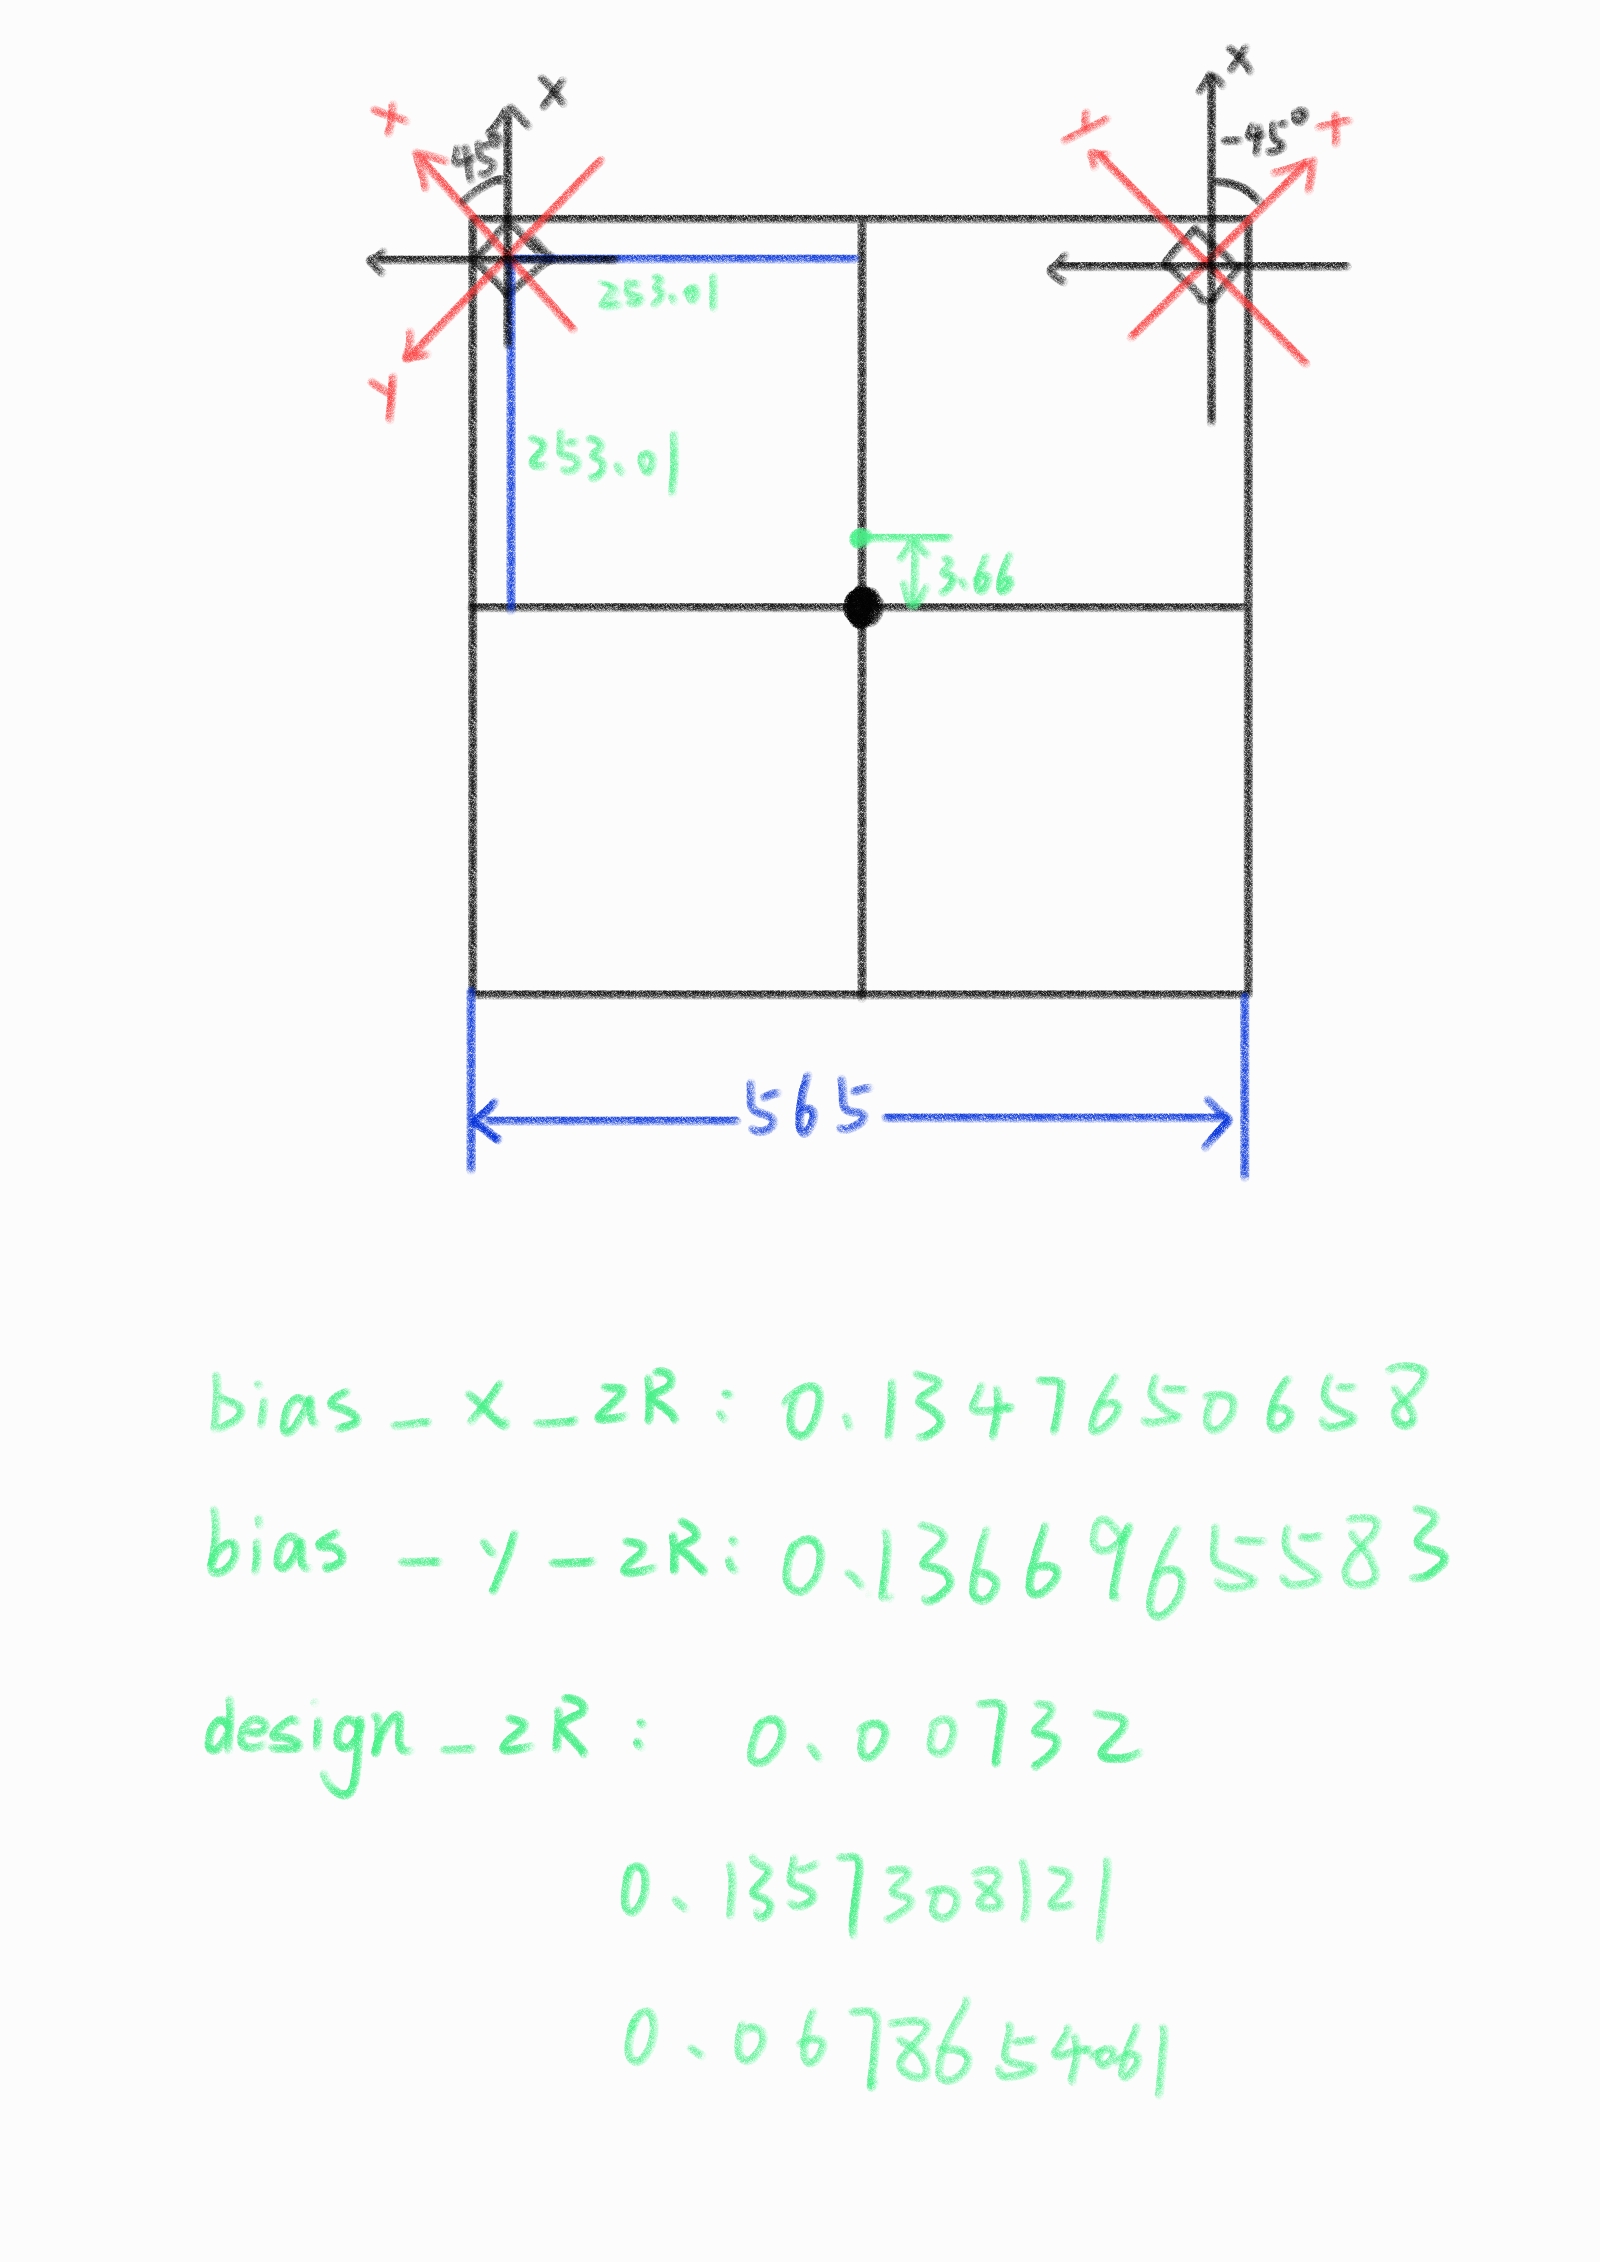 x
x
45°
x
-45°
x
Y
253.01
Y
253.01
3.66
565
bias_x_2R: 0.1347650658
bias_y_2R: 0.1366965583
design_2R: 0.00732
0.1357308121
0.0678654061